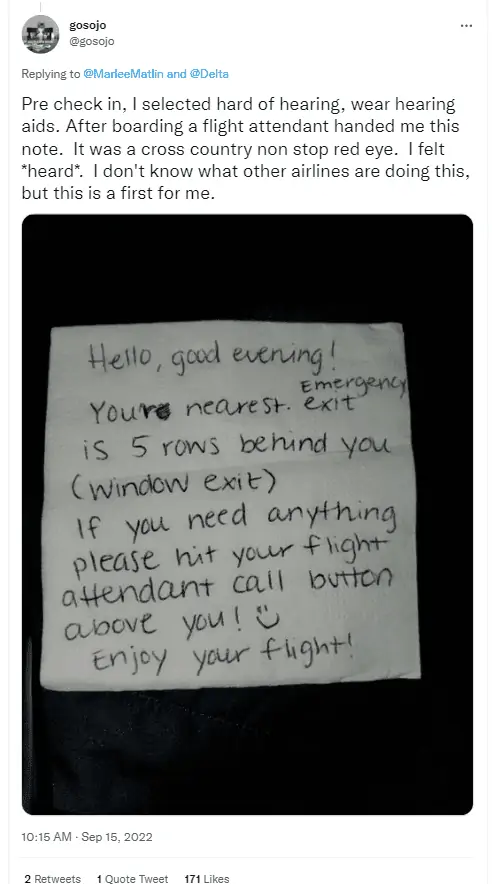 gosojo
@gosojo
Replying to @MarleeMatlin and @Delta
Pre check in, I selected hard of hearing, wear hearing
aids. After boarding a flight attendant handed me this
note. It was a cross country non stop red eye. I felt
*heard*. I don't know what other airlines are doing this,
but this is a first for me.
Hello, good evening!
Emergency
Youre nearest. exit
is 5 rows behind you
(window exit)
If you need anything
please hit your flight
attendant call button
above you!
Enjoy your flight!
10:15 AM · Sep 15, 2022
2 Retweets 1 Quote Tweet 171 Likes